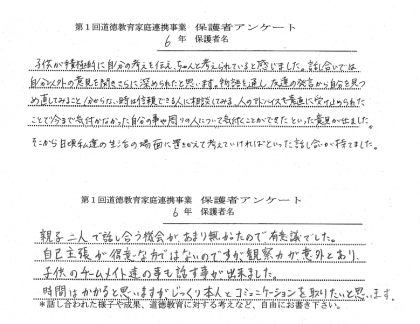 第1回道徳教育家庭連携事業 保護者アンケート
6年 保護者名
子供が積極的に自分の考えを伝え、ちゃんと考えられていると感じました。話し合いでは
自分以外の意見を聞きさらに深められたと思います。勉強を通し、友達の発言から自分を見つ
め直してみること、分からない時は信頼できる人に相談してみる、人のアドバイスを素直に受け止められた
ことで今まで気付かなかった自分の事や周りの人について気付くことができたといった意見が出ました。
そこから日頃私達の生活の場面に置きかえて考えていければといった話し合いが持てました。
第1回道徳教育家庭連携事業 保護者アンケート
6年 保護者名
親子二人で話し合う機会が、あまり無かったので有意議でした。
自己主張が得意な方ではないのですが観察力が意外とあり、
子供のチームメイト達の事も話す事が出来ました。
時間はかかると思いますがじっくり本人とコミュニケーションを取りたいと思います。
*話し合われた様子や成果、道徳教育に対する考えなど、自由にお書き下さい。